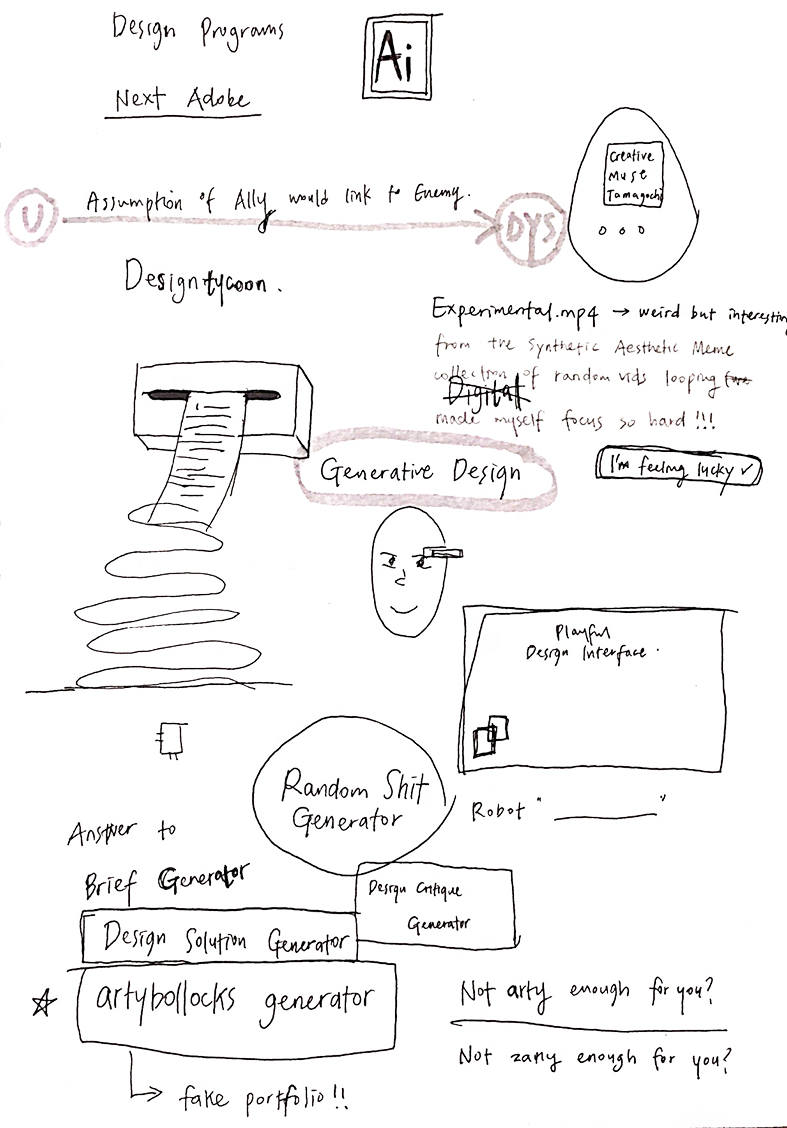 Design Programs
Ai
Next Adobe
Creative
Muse
Tamagochi
Assumption of Ally would link to Enemy.
U
DYS
Designtycoon.
Experimental.mp4 → weird but interesting
from the Synthetic Aesthetic Meme
collection of random vids looping
Digital
made myself focus so hard !!!
Generative Design
I'm feeling lucky ✓
Playful
Design Interface.
Random Shit
Generator
Robot "________"
Answer to
Brief Generator
Design Critique
Generator
Design Solution Generator
☆ artybollocks generator
Not arty enough for you?
Not zany enough for you?
fake portfolio!!